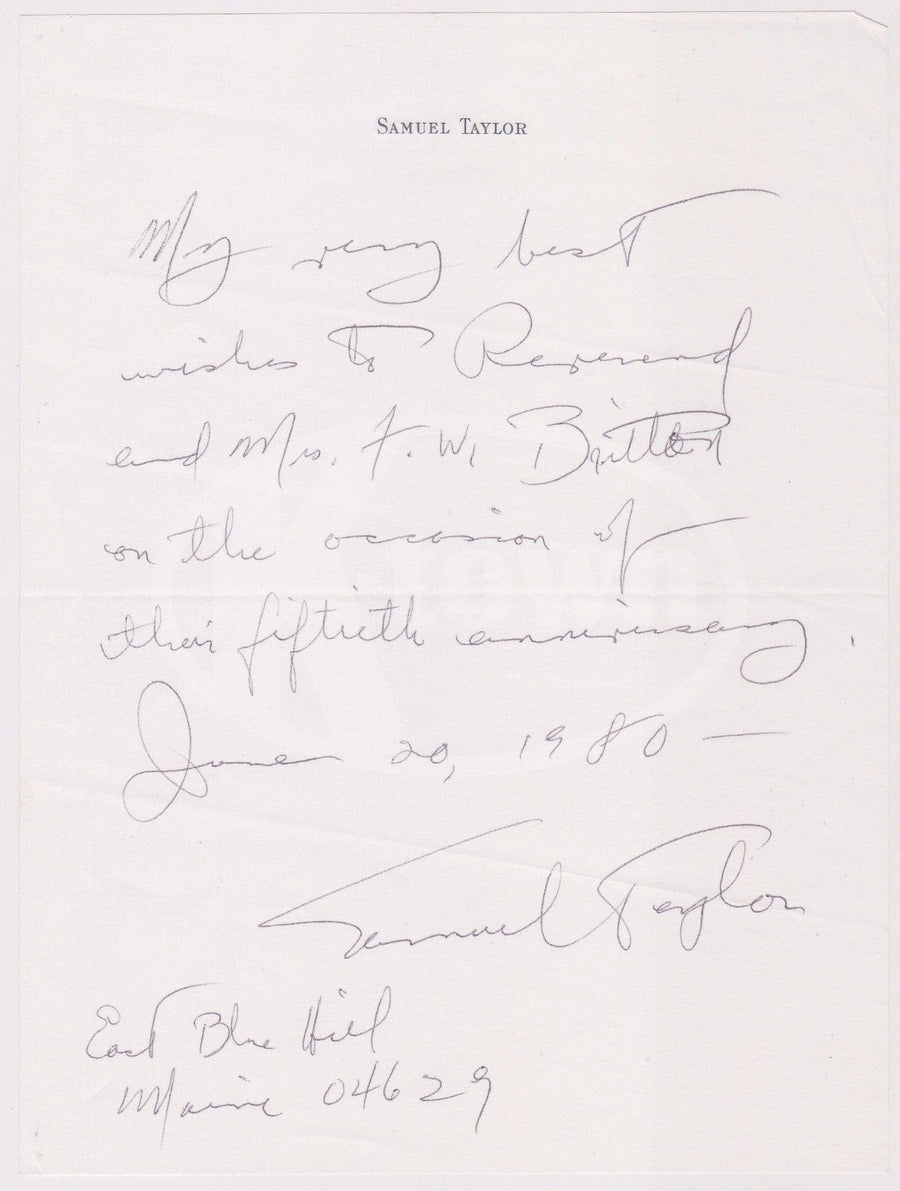 SAMUEL TAYLOR
My very best
wishes to Reverend
and Mrs. F. W. Britton
on the occasion of
their fiftieth anniversary.
June 20, 1980 —
Samuel Taylor
East Blue Hill
Maine 04629